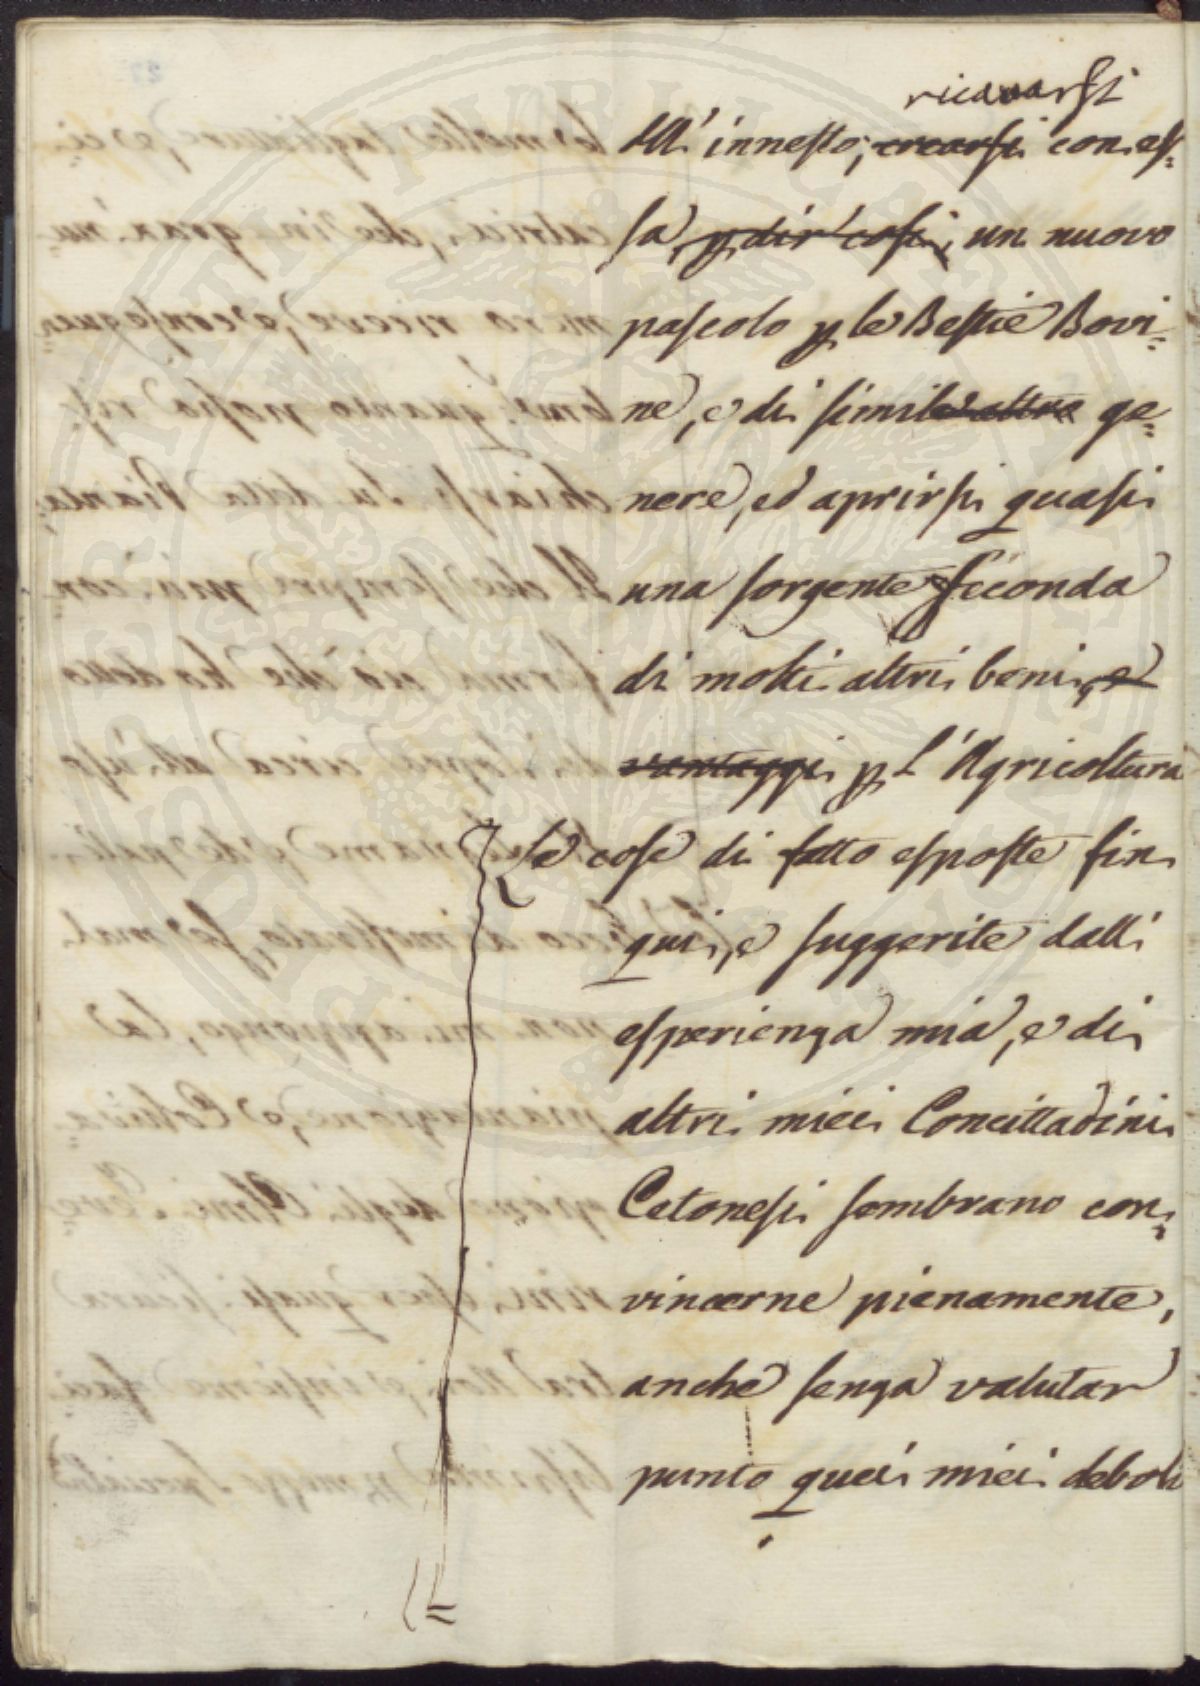 ricavarsi
all' innesto; crearsi con es=
sa, p dir così, un nuovo
pascolo p le Bestie Bovi=
ne, e di simil altro ge=
nere, ed aprirsi quasi
una sorgente feconda
di molti altri beni, e
vantaggi p l'Agricoltura
Le cose di fatto esposte fin
qui, e suggerite dall'
esperienza mia, e di
altri miei Concittadini
Cetonesi sembrano con=
vincerne pienamente,
anche senza valutar
punto quei miei deboli